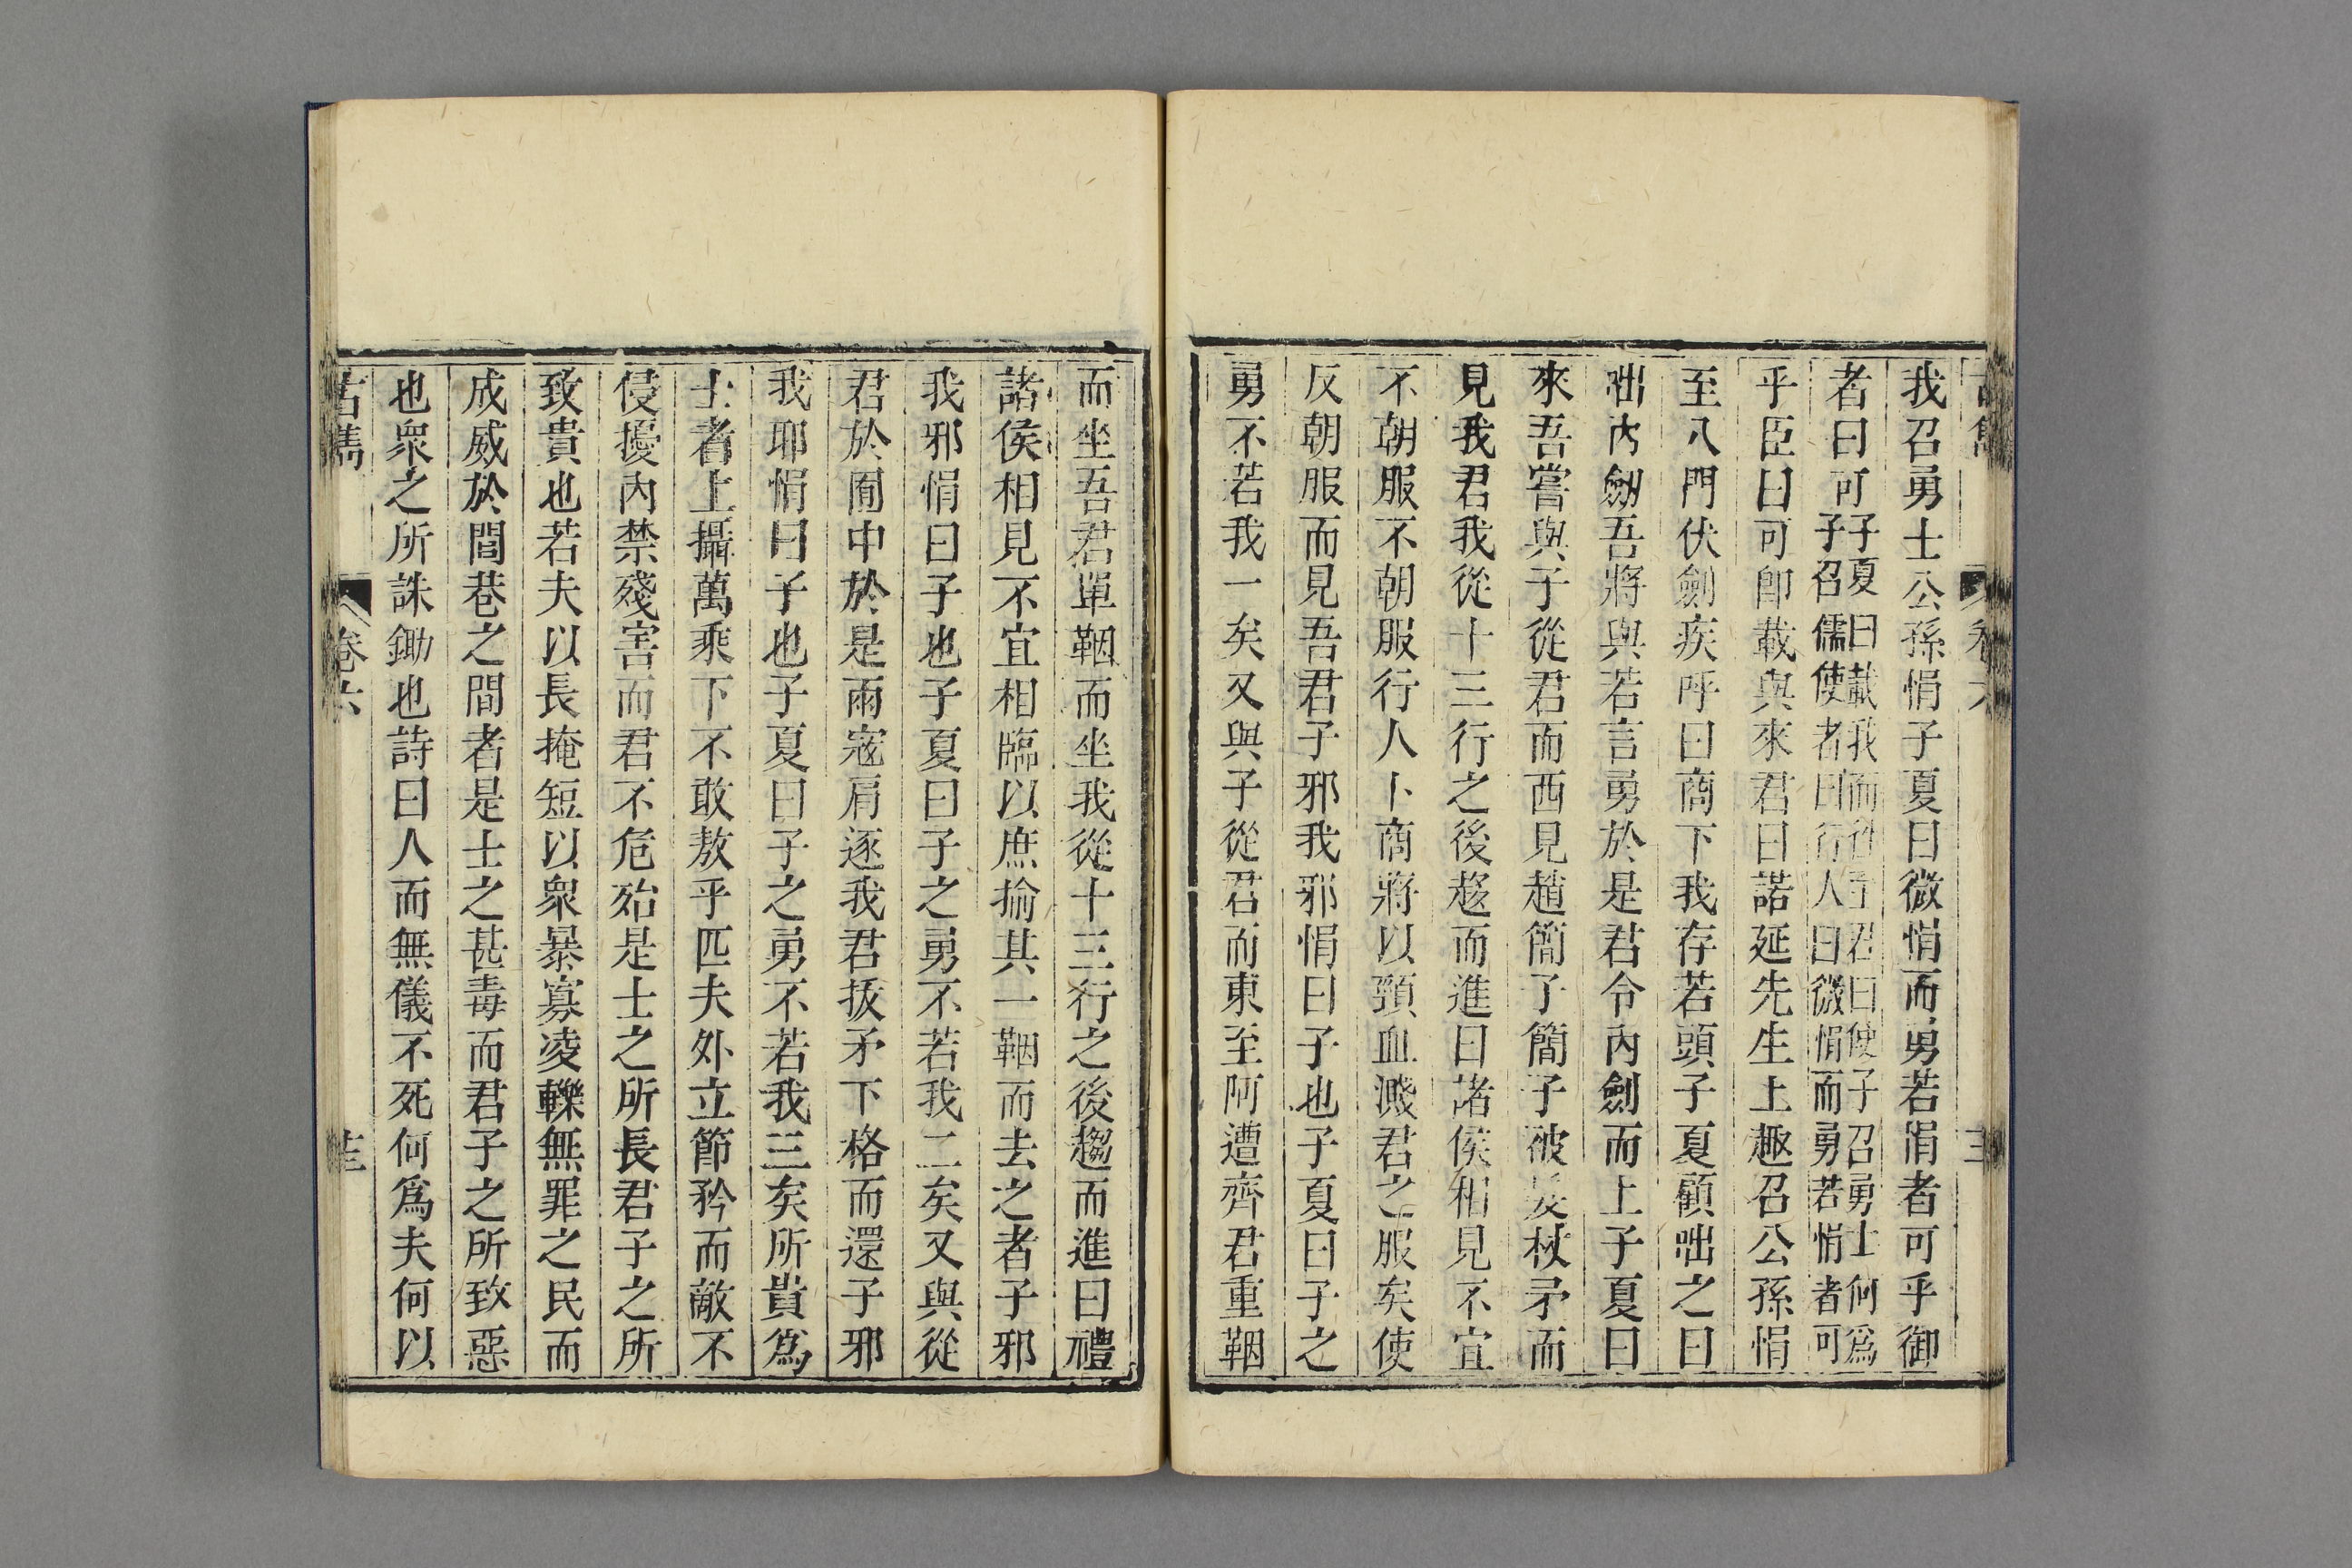 我召勇士公孫悁子夏曰微悁而勇若悁者可乎御
者曰可子夏曰載我而從子君曰使子召勇士何爲
子召儒使者曰行人曰微悁而勇若悁者可
乎臣曰可卽載與來君曰諾延先生上趣召公孫悁
至入門伏劍疾呼曰商下我存若頭子夏顧咄之曰
咄內劒吾將與若言勇於是君令內劍而上子夏曰
來吾嘗與子從君而西見趙簡子簡子被髮杖矛而
見我君我從十三行之後趍而進曰諸侯相見不宜
不朝服不朝服行人卜商將以頸血濺君之服矣使
反朝服而見吾君子邪我邪悁曰子也子夏曰子之
勇不若我一矣又與子從君而東至阿遭齊君重鞇
而坐吾君單鞇而坐我從十三行之後趨而進曰禮
諸侯相見不宜相臨以庶揄其一鞇而去之者子邪
我邪悁曰子也子夏曰子之勇不若我二矣又與從
君於囿中於是兩寇肩逐我君拔矛下格而還子邪
我耶悁曰子也子夏曰子之勇不若我三矣所貴爲
士者上攝萬乘下不敢敖乎匹夫外立節矜而敵不
侵擾內禁殘害而君不危殆是士之所長君子之所
致貴也若夫以長掩短以衆暴寡凌轢無罪之民而
成威於閭巷之間者是士之甚毒而君子之所致惡
也衆之所誅鋤也詩曰人而無儀不死何爲夫何以
古雋
卷六